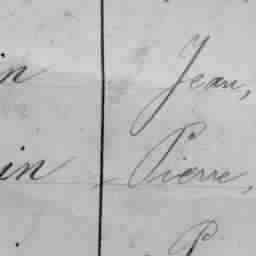 in Jean,
in Pierre,